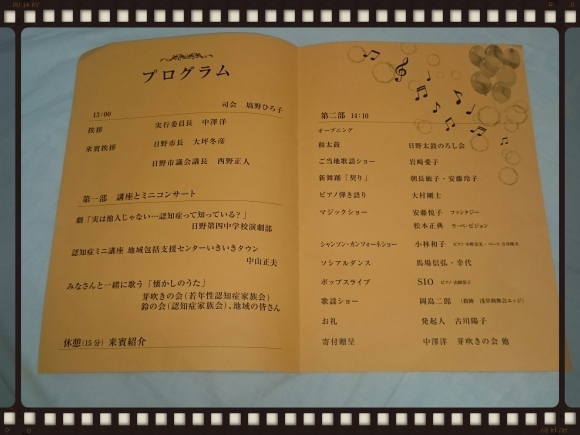 プログラム
司会 塙野ひろ子
13:00
挨拶 実行委員長 中澤洋
来賓挨拶 日野市長 大坪冬彦
日野市議会議長 西野正人
第一部 講座とミニコンサート
劇「実は他人じゃない…認知症って知っている？」
日野第四中学校演劇部
認知症ミニ講座 地域包括支援センターいきいきタウン
中山正夫
みなさんと一緒に歌う「懐かしのうた」
芽吹きの会（若年性認知症家族会）
鈴の会（認知症家族会）、地域の皆さん
休憩（15分）来賓紹介
第二部 14:10
オープニング
和太鼓 日野太鼓のろし会
ご当地歌謡ショー 岩崎愛子
新舞踊「契り」 朝長敏子・安藤玲子
ピアノ弾き語り 大村剛士
マジックショー 安藤悦子 ファンタジー
松本正典 ラ・ペ・ビジョン
シャンソン・カンツォーネショー 小林和子
ソシアルダンス 馬場信弘・幸代
ポップスライブ SIO
歌謡ショー 岡島二郎
お礼 発起人 古川陽子
寄付贈呈 中澤洋 芽吹きの会 他